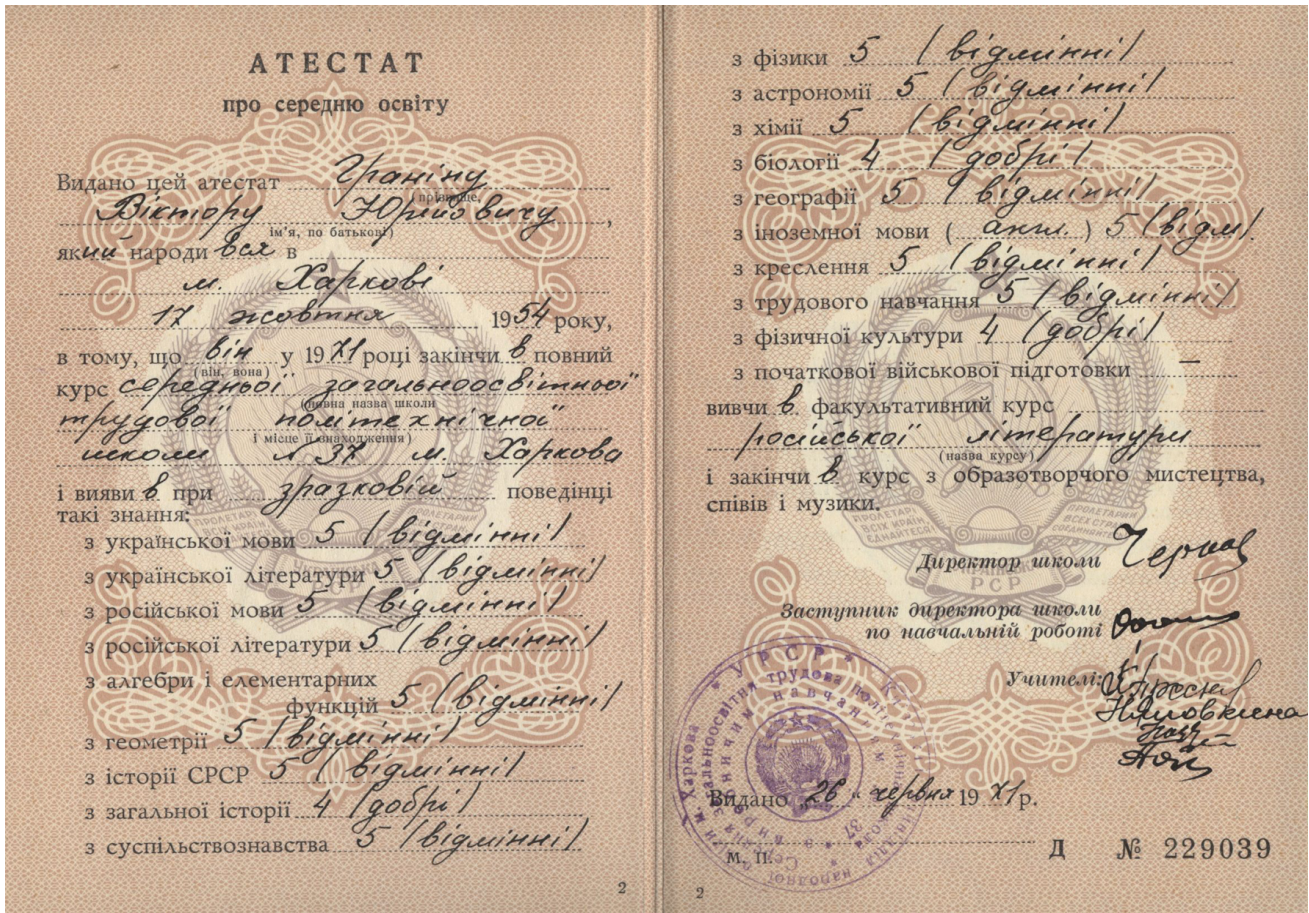 АТЕСТАТ
про середню освіту
Видано цей атестат Граніну
(прізвище,
Віктору Юрійовичу,
ім’я, по батькові)
який народився в
м. Харкові
17 жовтня 1954 року,
в тому, що він у 1971 році закінчив повний
(він, вона)
курс середньої загальноосвітньої
(повна назва школи
трудової політехнічної
і місце її знаходження)
школи №37 м. Харкова
і виявив при зразковій поведінці
такі знання:
з української мови 5 (відмінні)
з української літератури 5 (відмінні)
з російської мови 5 (відмінні)
з російської літератури 5 (відмінні)
з алгебри і елементарних
функцій 5 (відмінні)
з геометрії 5 (відмінні)
з історії СРСР 5 (відмінні)
з загальної історії 4 (добрі)
з суспільствознавства 5 (відмінні)
2
з фізики 5 (відмінні)
з астрономії 5 (відмінні)
з хімії 5 (відмінні)
з біології 4 (добрі)
з географії 5 (відмінні)
з іноземної мови (англ.) 5 (відм).
з креслення 5 (відмінні)
з трудового навчання 5 (відмінні)
з фізичної культури 4 (добрі)
з початкової військової підготовки —
вивчив факультативний курс
російської літератури
(назва курсу)
і закінчив курс з образотворчого мистецтва,
співів і музики.
Директор школи
Заступник директора школи
по навчальній роботі
Учителі:
Видано „26“ червня 1971 р.
М. П.
Д № 229039
2